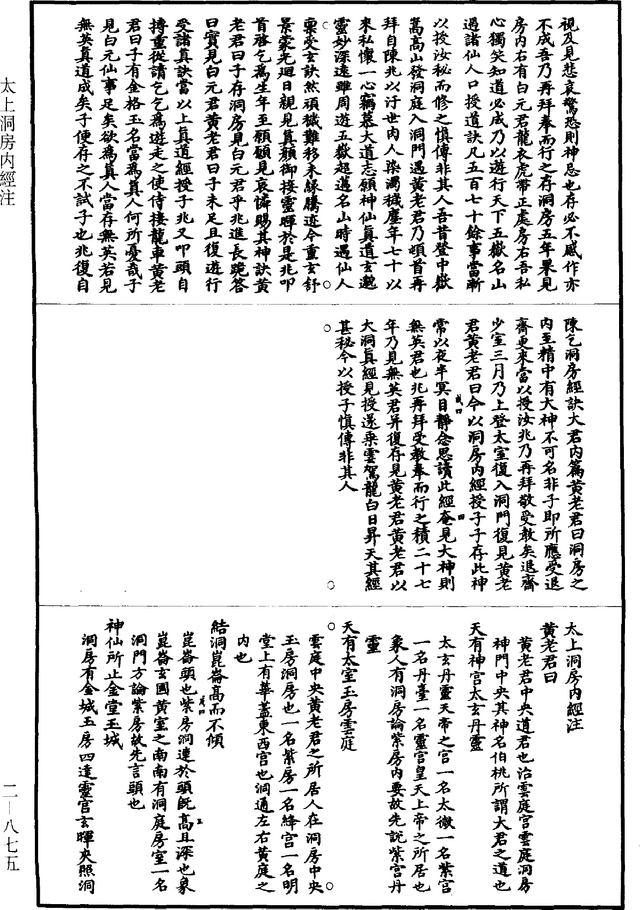 太上洞房内經注
二—八七五
視及見悲哀驚恐則神忌也存必不感作亦
不成吾乃再拜奉而行之存洞房五年果見
房内右有白元君龍衣虎帶正處房右吾私
心獨笑知道必成乃以遊行天下五嶽名山
過諸仙人口授道訣凡五百七十餘事當漸
以授汝秘而修之慎傳非其人吾昔登中嶽
嵩高山發洞庭入洞門遇黄老君乃頓首再
拜自陳兆以汙世肉人染濁穢塵年七十以
來私懷一心竊慕大道志願神仙真道玄邈
靈妙深遠雖周遊五嶽超過名山時遇仙人
稟受玄訣然頑穢難移未緣騰迹今重玄舒
景蒙光廻日親見真顔御接靈暉於是兆叩
首啓乞爲生年至願願見哀憐賜其神訣黄
老君曰子存洞房見白元君乎兆進長跪答
曰實見白元君黄老君曰子未足且復遊行
受諸真訣當以上真道經授子兆又叩頭自
搏重從請乞乞爲遊走之使侍接龍車黄老
君曰子有金格玉名當爲真人何所憂哉子
見白元仙事足矣欲爲真人當存無英若見
無英真道成矣子便存之不試子也兆復自
陳乞洞房經訣大君内篇黄老君曰洞房之
内至精中有大神不可名非子即所應受退
齋更來當以授汝兆乃再拜敬受教矣退齋
少室三月乃上登太室復入洞門復見黄老
君黄老君曰今以洞房内經授子子存此神
常以夜半冥目靜念思讀此經奄見大神則
無英君也兆再拜受教奉而行之積二十七
年乃見無英君并復存見黄老君黄老君以
大洞真經見授遂乘雲駕龍白日昇天其經
甚秘今以授子慎傳非其人
太上洞房内經注
黄老君曰
黄老君中央道君也治雲庭宫雲庭洞房
神門中央其神名伯桃所謂大君之道也
天有神宫太玄丹靈
太玄丹靈天帝之宫一名太微一名紫宫
一名丹臺一名靈宫皇天上帝之所居也
象人有洞房論紫房内要故先説紫宫丹
靈
天有太室玉房雲庭
雲庭中央黄老君之所居人在洞房中央
玉房洞房也一名紫房一名絳宫一名明
堂上有華蓋東西宫也洞通左右黄庭之
内也
結洞崑崙高而不傾
崑崙頭也紫房洞連於頭既高且深也象
崑崙玄國黄室之南南有洞庭房室一名
洞門方論紫房故先言頭也
神仙所止金堂玉城
洞房有金城玉房四達靈宫玄暉夾照洞